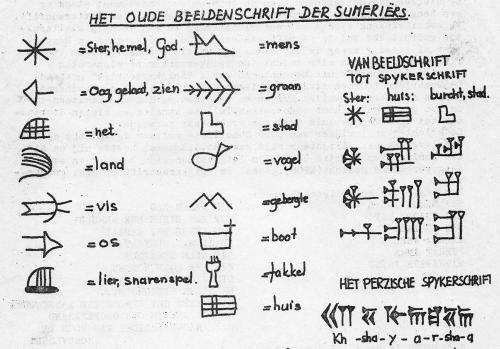 HET OUDE BEELDENSCHRIFT DER SUMERIËRS.
=Ster, hemel, God.
=Oog, gelaad, zien
=het.
=land
=vis
=os
=lier, snarenspel.
=mens
=graan
=stad
=vogel
=gebergte
=boot
=fakkel
=huis
VAN BEELDSCHRIFT
TOT SPYKERSCHRIFT
Ster: huis: burcht, stad.
HET PERZISCHE SPYKERSCHRIFT
Kh - sha - y - a - r - sha - a